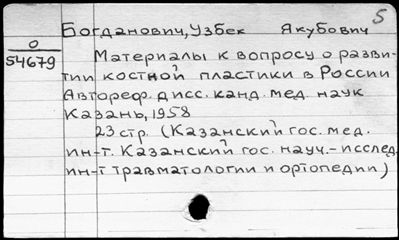 5
Богданович, Узбек Якубович
О
54679
Материалы к вопросу о разви-
тии костной пластики в России
Автореф. дисс. канд. мед. наук
Казань, 1958
23 стр. (Казанский гос. мед.
ин-т. Казанский гос. науч.-исслед.
ин-т травматологии и ортопедии)